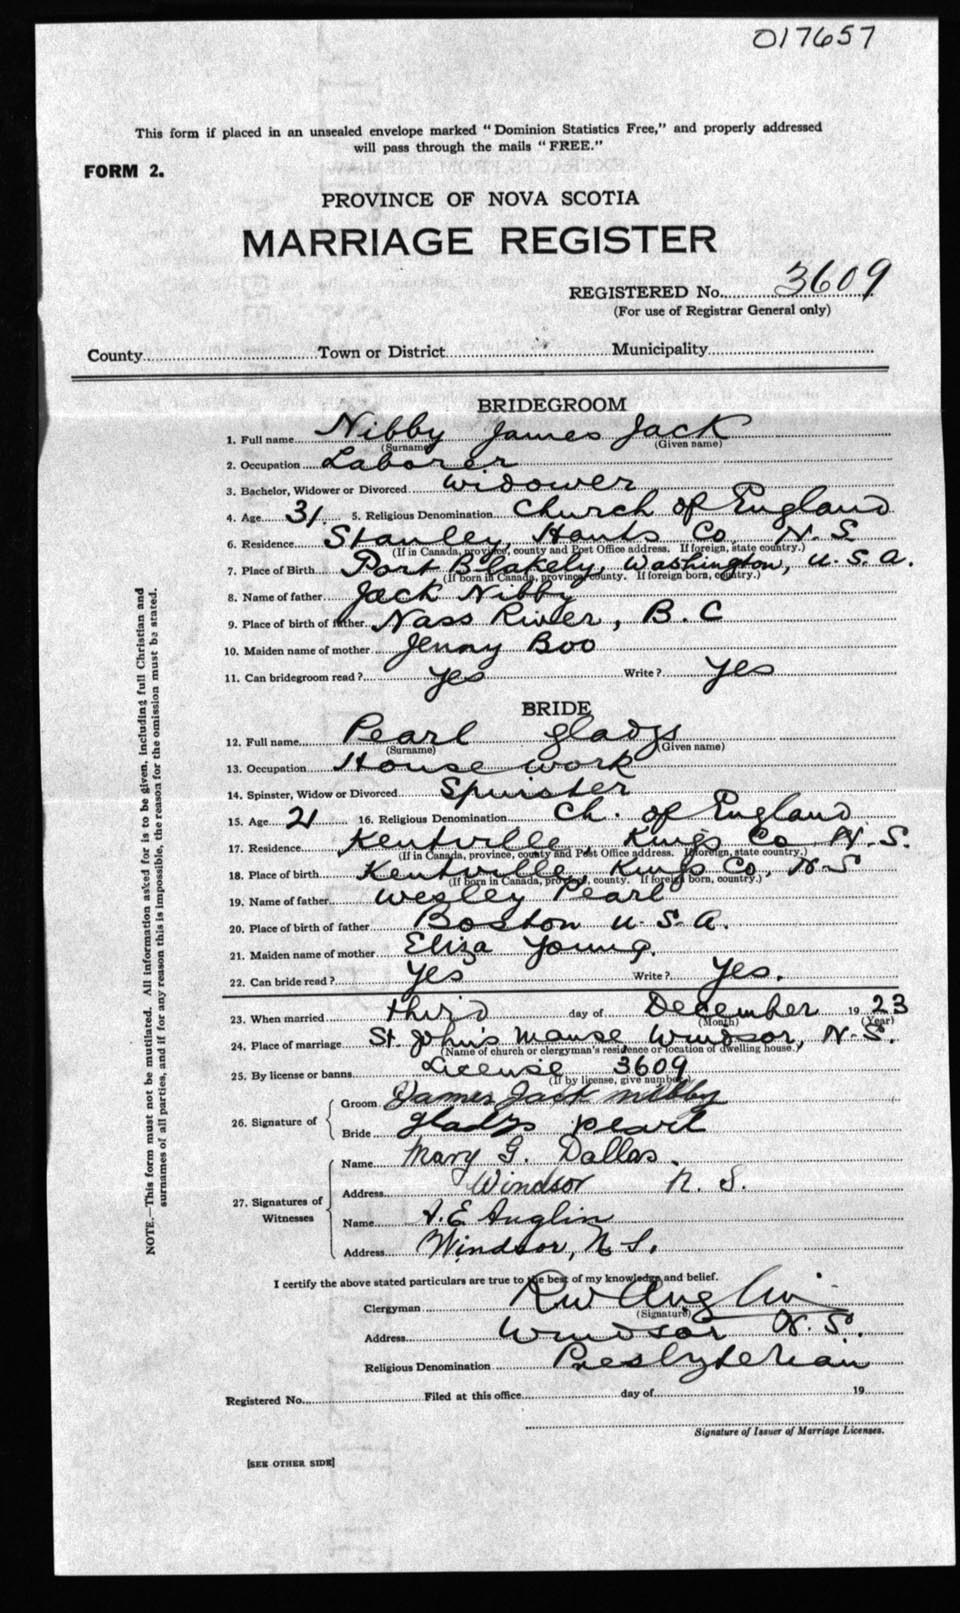 017657
This form if placed in an unsealed envelope marked "Dominion Statistics Free," and properly addressed
will pass through the mails "FREE."
FORM 2.
PROVINCE OF NOVA SCOTIA
MARRIAGE REGISTER
REGISTERED No. 3609
(For use of Registrar General only)
County Town or District Municipality
BRIDEGROOM
1. Full name Nibby James Jack
(Surname) (Given name)
2. Occupation Laborer
3. Bachelor, Widower or Divorced widower
4. Age 31 5. Religious Denomination Church of England
6. Residence Stanley, Hants Co. N. S.
(If in Canada, province, county and Post Office address. If foreign, state country.)
7. Place of Birth Port Blakely, Washington, U. S. A.
(If born in Canada, province, county. If foreign born, country.)
8. Name of father Jack Nibby
9. Place of birth of father Nass River, B. C
10. Maiden name of mother Jenny Boo
11. Can bridegroom read? yes Write? yes
BRIDE
12. Full name Pearl Gladys
(Surname) (Given name)
13. Occupation House work
14. Spinster, Widow or Divorced Spinster
15. Age 21 16. Religious Denomination Ch. of England
17. Residence Kentville, Kings Co. N. S.
(If in Canada, province, county and Post Office address. If foreign, state country.)
18. Place of birth Kentville, Kings Co, N S
(If born in Canada, province, county. If foreign born, country.)
19. Name of father Wesley Pearl
20. Place of birth of father Boston U. S. A.
21. Maiden name of mother Eliza Young.
22. Can bride read? yes Write? yes.
23. When married third day of December 1923
(Month) (Year)
24. Place of marriage St John's Manse Windsor, N. S.
(Name of church or clergyman's residence or location of dwelling house.)
25. By license or banns License 3609
(If by license, give number)
26. Signature of
Groom James Jack Nibby
Bride Gladys Pearl
27. Signatures of Witnesses
Name Mary G. Dallas.
Address Windsor N. S.
Name A. E Anglin
Address Windsor, N. S.
I certify the above stated particulars are true to the best of my knowledge and belief.
Clergyman R W Anglin
(Signature)
Address Windsor N. S.
Religious Denomination Presbyterian
Registered No. Filed at this office day of 19
Signature of Issuer of Marriage Licenses.
[SEE OTHER SIDE]
NOTE.—This form must not be mutilated. All information asked for is to be given, including full Christian and
surnames of all parties, and if for any reason this is impossible, the reason for the omission must be stated.